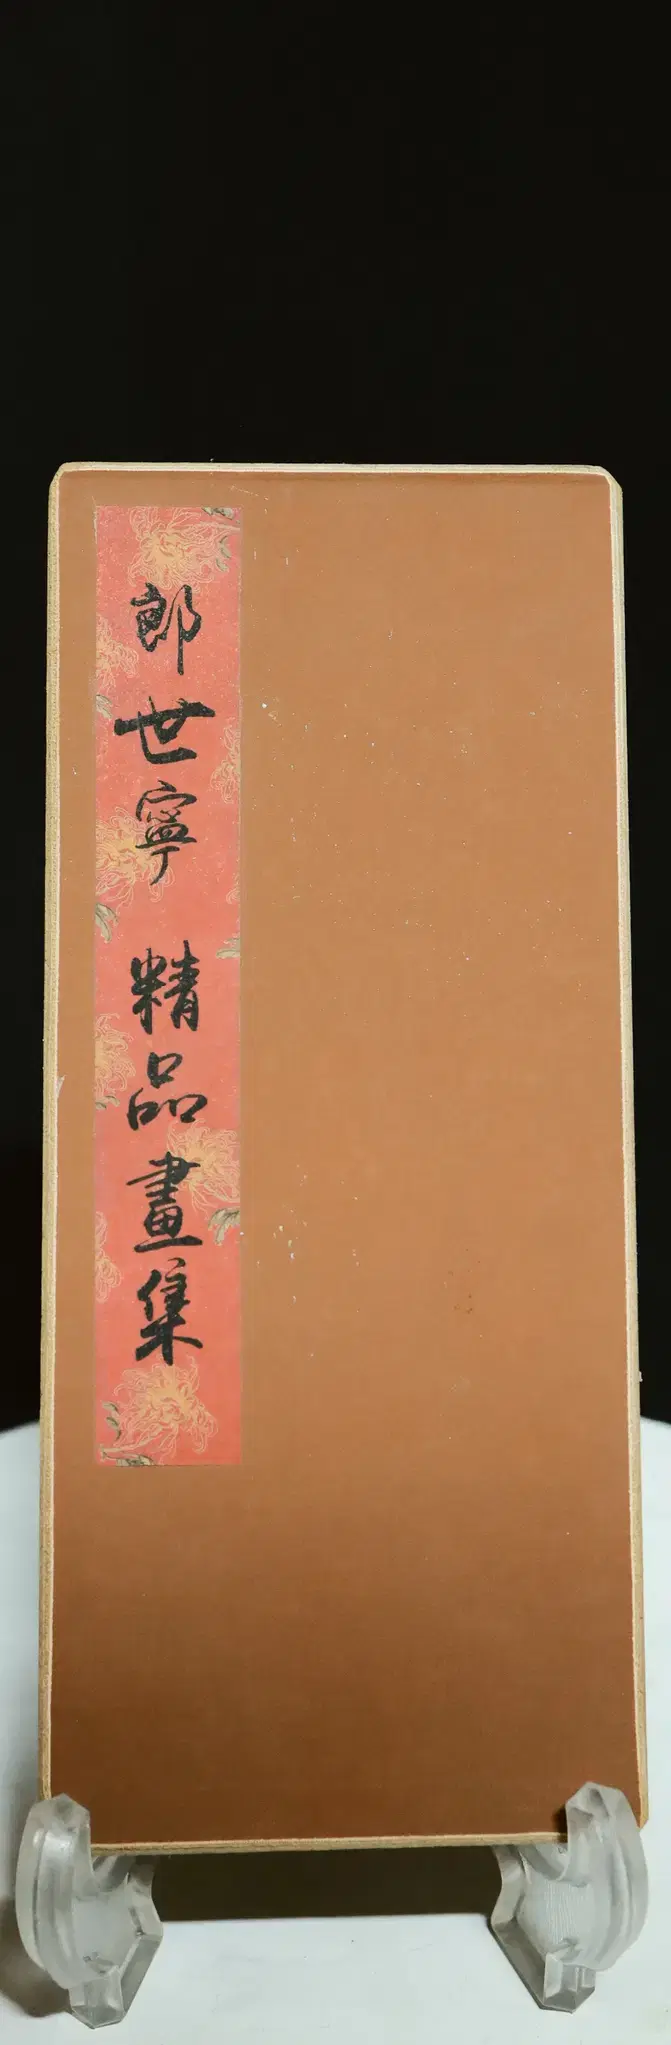 郎世寧 精品畫集